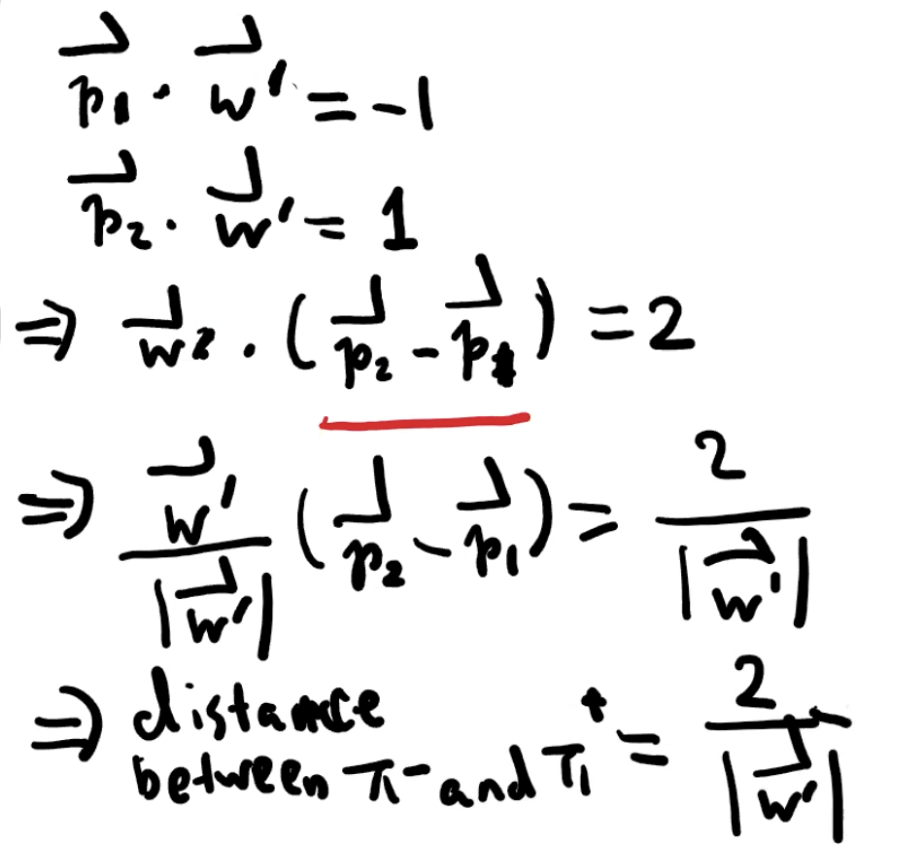 p⃗₁ · w⃗' = -1
p⃗₂ · w⃗' = 1
⇒ w⃗' · (p⃗₂ - p⃗₁) = 2
⇒ w⃗'/|w⃗'| (p⃗₂ - p⃗₁) = 2/|w⃗'|
⇒ distance
between π⁻ and π⁺ = 2/|w⃗'|